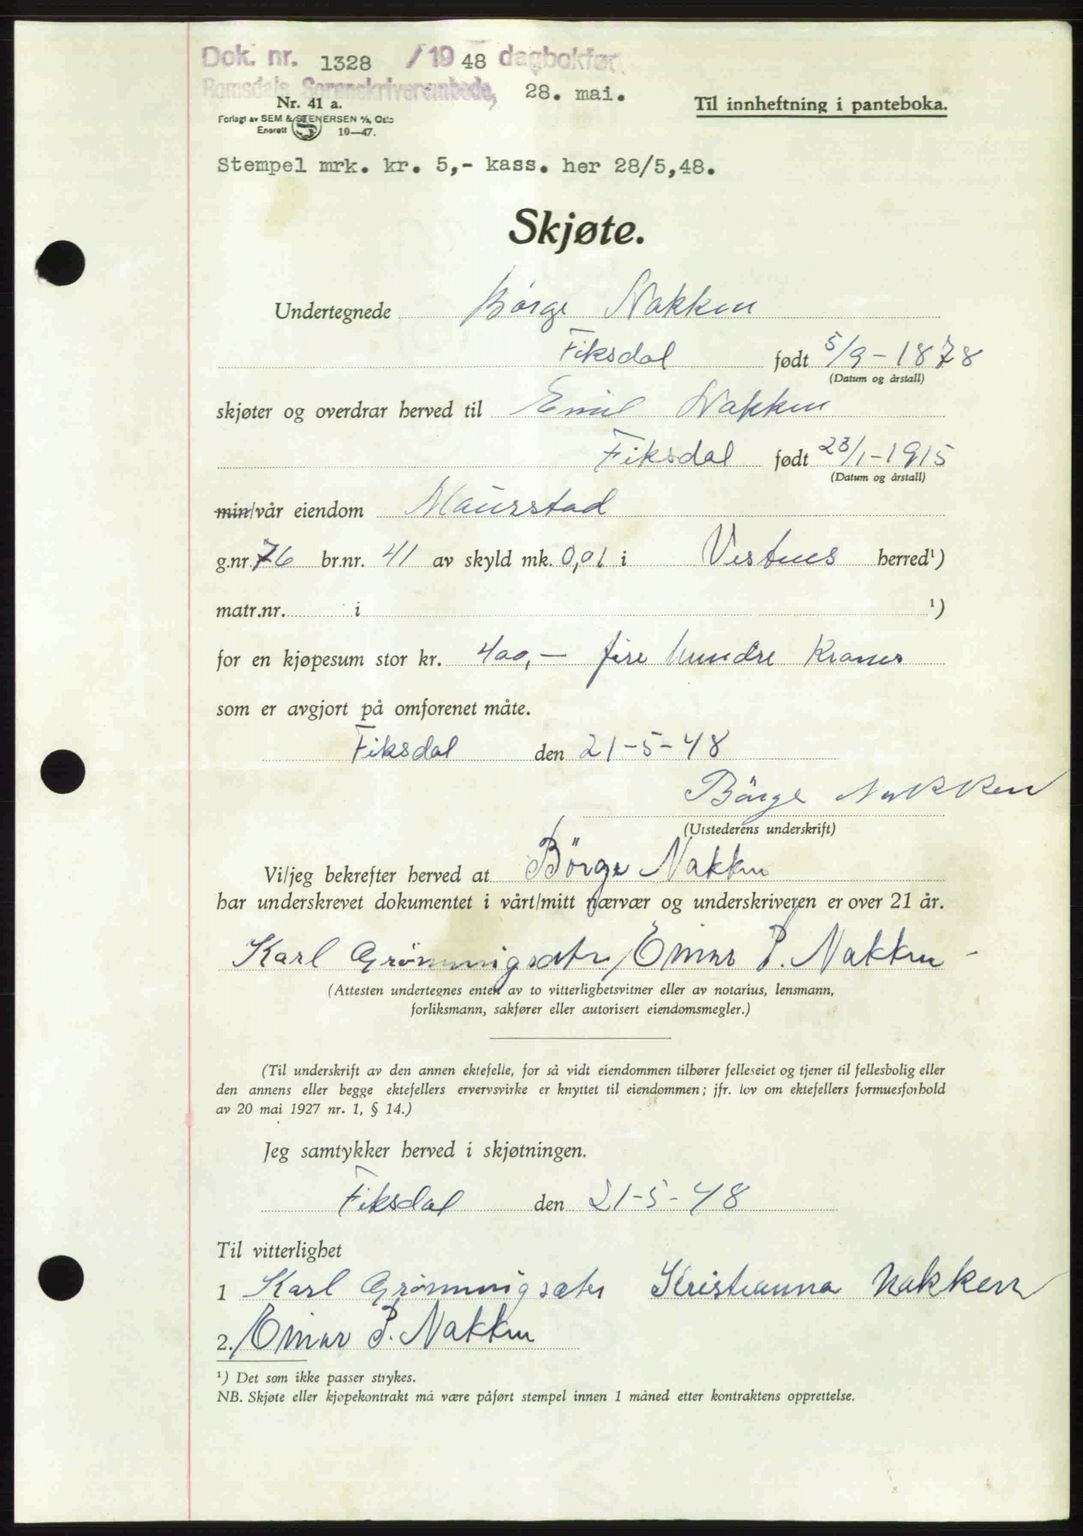 Dok. nr. 1328 / 1948 dagbokført
Romsdals Sorenskriverembede, 28. mai.
Nr. 41 a.
Til innheftning i panteboka.
Forlagt av SEM & STENERSEN A/S, Oslo
Enerett 10-47.
Stempel mrk. kr. 5,- kass. her 28/5,48.
Skjøte.
Undertegnede Börge Nakken
Fiksdal født 5/9-1878
(Datum og årstall)
skjøter og overdrar herved til Emil Nakken
Fiksdal født 23/1-1915
(Datum og årstall)
min/vår eiendom Maursstad
g.nr. 76 br.nr. 41 av skyld mk. 0,01 i Vestnes herred¹)
matr.nr. i ¹)
for en kjøpesum stor kr. 400,- fire hundre Kroner
som er avgjort på omforenet måte.
Fiksdal den 21-5-48
Börge Nakken
(Utstederens underskrift)
Vi/jeg bekrefter herved at Börge Nakken
har underskrevet dokumentet i vårt/mitt nærvær og underskriveren er over 21 år.
Karl Grönningsæter Einar P. Nakken
(Attesten undertegnes enten av to vitterlighetsvitner eller av notarius, lensmann,
forliksmann, sakfører eller autorisert eiendomsmegler.)
(Til underskrift av den annen ektefelle, for så vidt eiendommen tilhører felleseiet og tjener til fellesbolig eller
den annens eller begge ektefellers ervervsvirke er knyttet til eiendommen; jfr. lov om ektefellers formuesforhold
av 20 mai 1927 nr. 1, § 14.)
Jeg samtykker herved i skjøtningen.
Fiksdal den 21-5-48
Til vitterlighet
1 Karl Grönningsæter Kristianna Nakken
2. Einar P. Nakken
¹) Det som ikke passer strykes.
NB. Skjøte eller kjøpekontrakt må være påført stempel innen 1 måned etter kontraktens opprettelse.